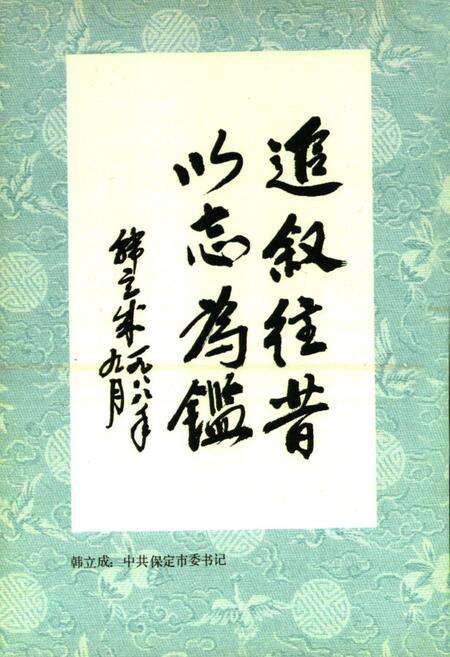 追叙往昔
以志为鑑
韩立成 一九八八年
九月
韩立成：中共保定市委书记